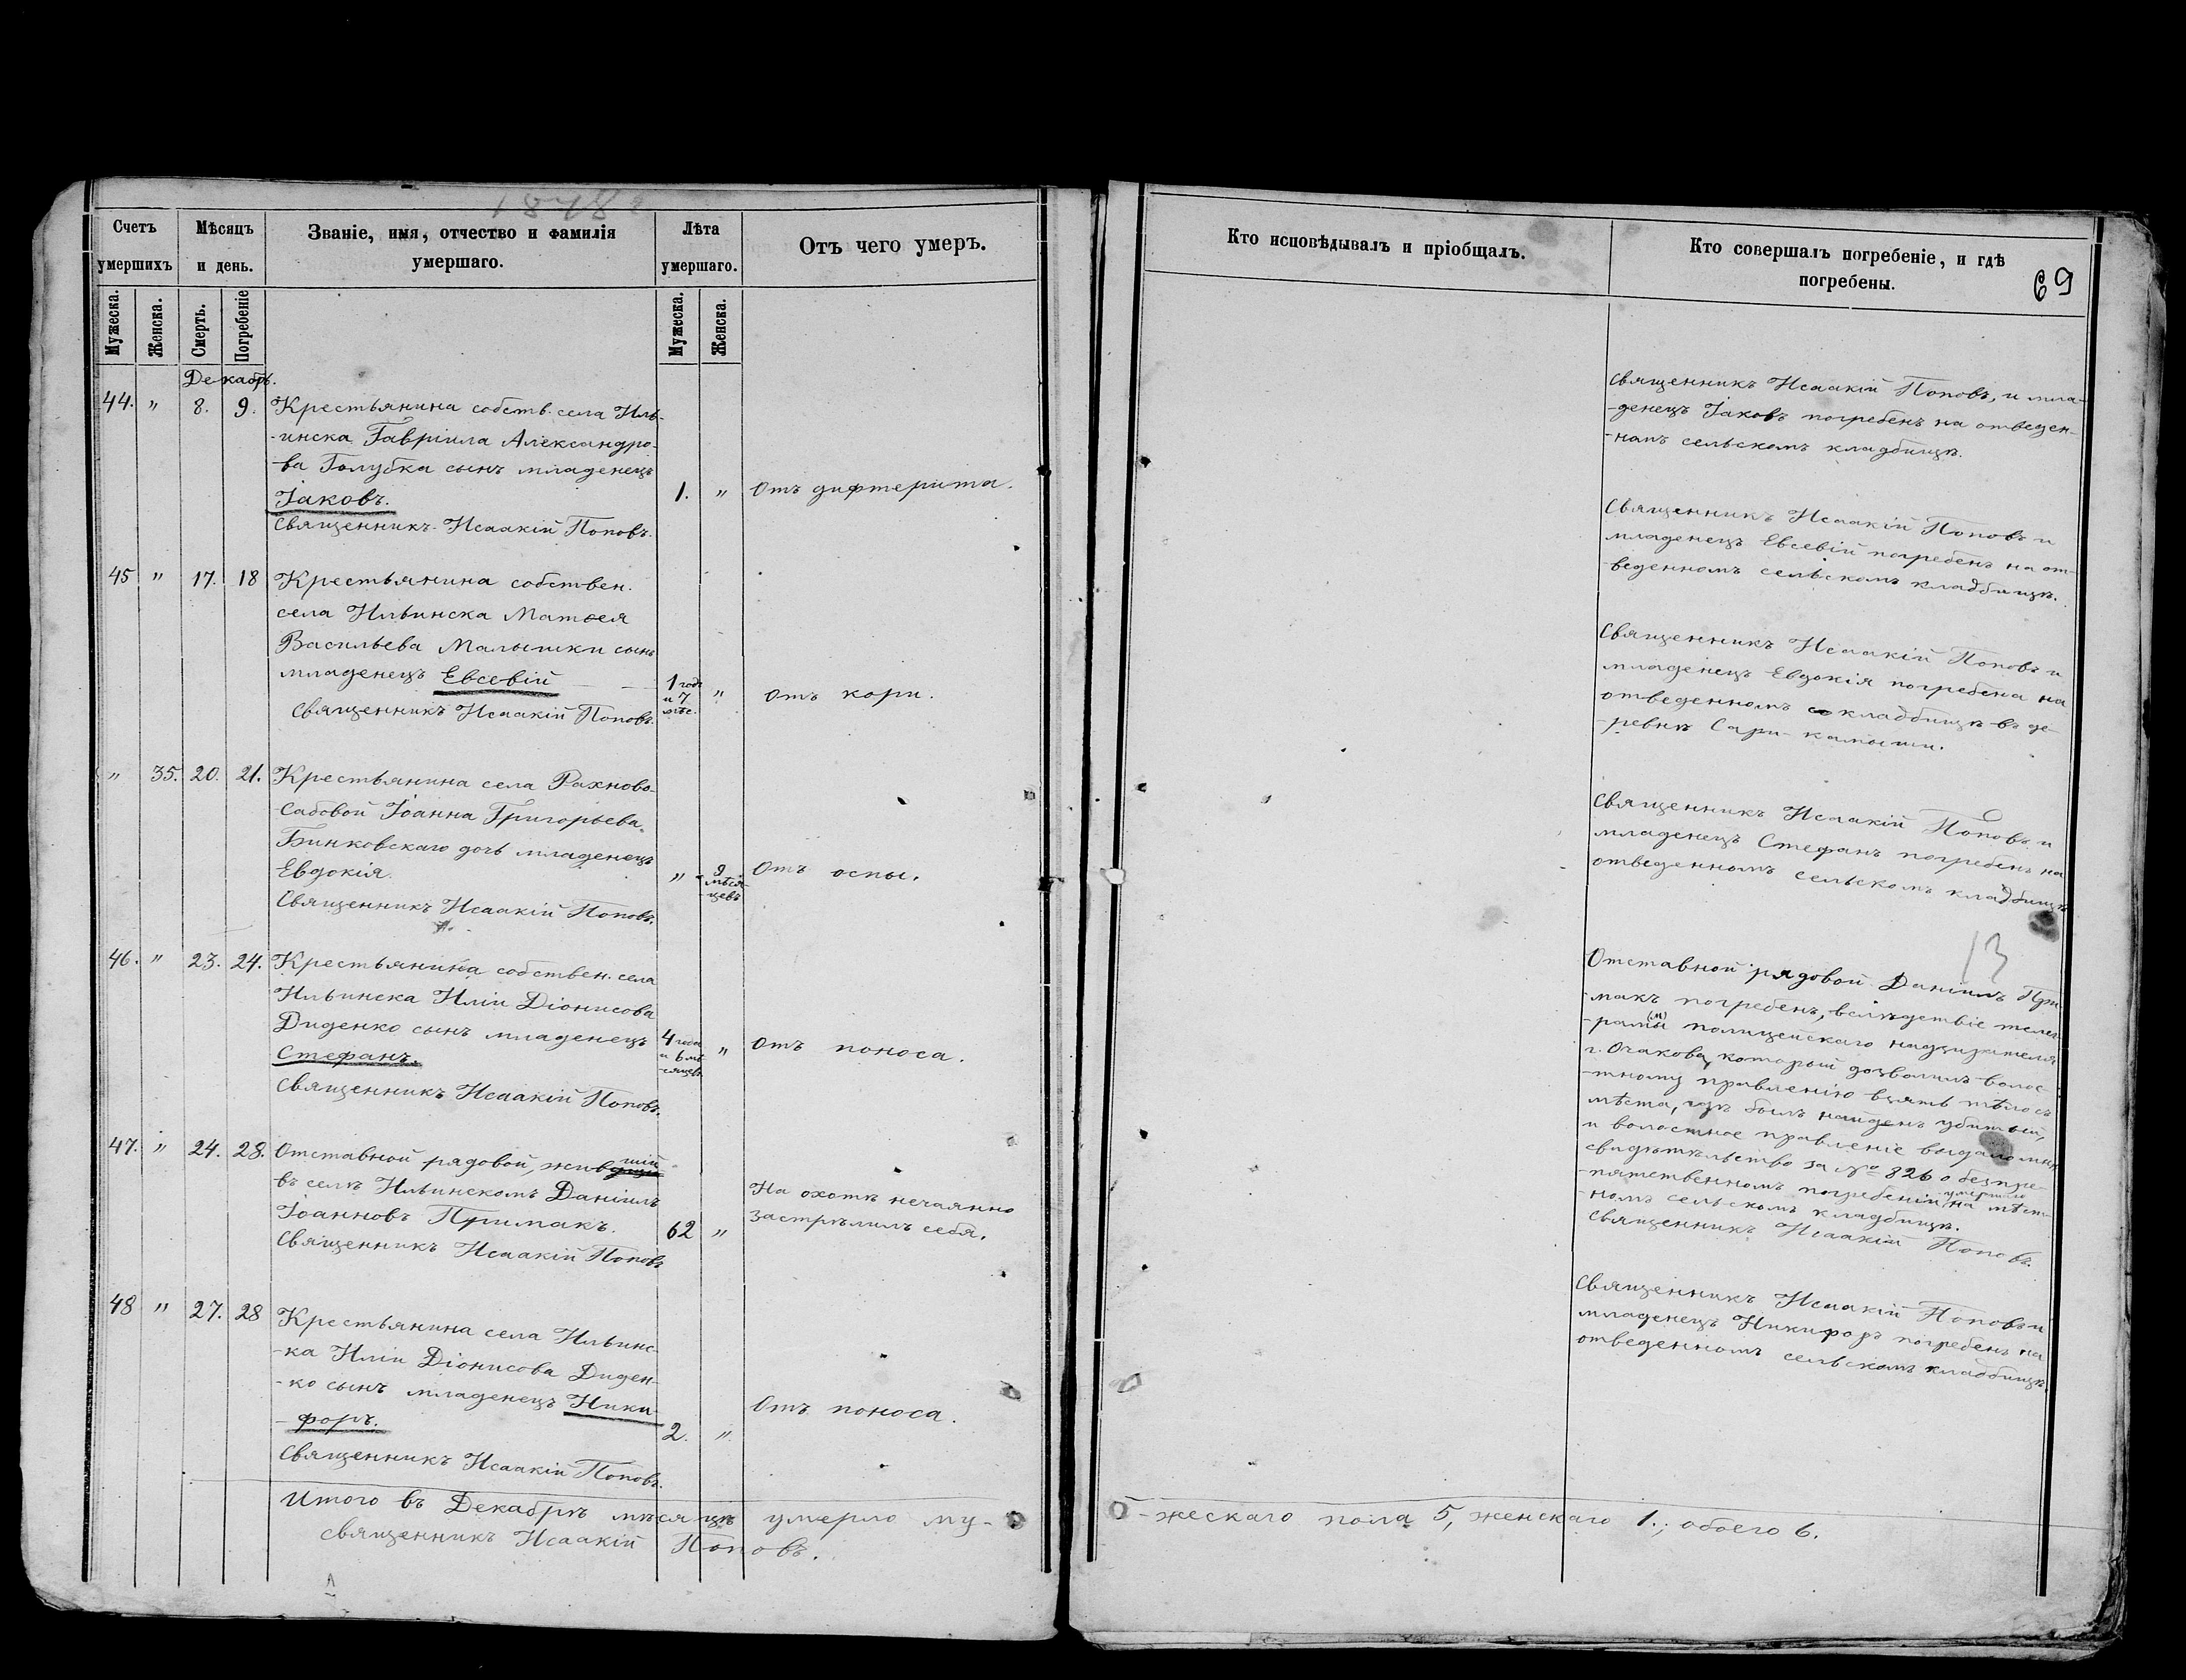 1878
Счетъ умершихъ
Мѣсяцъ и день.
Званіе, имя, отчество и фамилія умершаго.
Лѣта умершаго.
Отъ чего умеръ.
Мужеска.
Женска.
Смерть.
Погребеніе
Мужеска.
Женска.
Декабрь.
44. " 8. 9. Крестьянина собств. села Иль-
-инска Гавріила Александро-
-ва Голубка сынъ младенецъ
Іаковъ. 1. " Отъ дифтерита.
Священникъ Исаакій Поповъ.
45 " 17. 18 Крестьянина собствен.
села Ильинска Матѳея
Васильева Малышки сынъ
младенецъ Евсевій 1 годъ и 7 мѣс. " Отъ кори.
Священникъ Исаакій Поповъ.
" 35. 20. 21. Крестьянина села Рахново-
-Садовой Іоанна Григорьева
Бинковскаго дочь младенецъ
Евдокія. " 9 мѣся-цевъ Отъ оспы.
Священникъ Исаакій Поповъ.
46. " 23. 24. Крестьянина собствен. села
Ильинска Иліи Діонисова
Диденко сынъ младенецъ
Стефанъ. 4 года и 6 мѣ-сяцевъ " Отъ поноса.
Священникъ Исаакій Поповъ.
47. " 24. 28. Отставной рядовой, жившій
въ селѣ Ильинскомъ Даніилъ
Іоанновъ Примакъ. 62 " На охотѣ нечаянно
застрѣлилъ себя.
Священникъ Исаакій Поповъ
48 " 27. 28 Крестьянина села Ильинс-
-ка Иліи Діонисова Диден-
-ко сынъ младенецъ Ники-
-форъ. 2. " Отъ поноса.
Священникъ Исаакій Поповъ.
Итого въ Декабрѣ мѣсяцѣ умерло му-
Священникъ Исаакій Поповъ.
Кто исповѣдывалъ и пріобщалъ.
Кто совершалъ погребеніе, и гдѣ погребены.
69
Священникъ Исаакій Поповъ, и мла-
-денецъ Іаковъ погребенъ на отведен-
-номъ сельскомъ кладбищѣ.
Священникъ Исаакій Поповъ и
младенецъ Евсевій погребенъ на от-
-веденномъ сельскомъ кладбищѣ.
Священникъ Исаакій Поповъ и
младенецъ Евдокія погребена на
отведенномъ кладбищѣ въ де-
-ревнѣ Сари-камыши.
Священникъ Исаакій Поповъ и
младенецъ Стефанъ погребенъ на
отведенномъ сельскомъ кладбищѣ
13
Отставной рядовой Даніилъ При-
-макъ погребенъ, вслѣдствіе телег-
-рамы (м) полицейскаго надзирателя
г. Очакова, который дозволилъ волос-
-тному правленію взять тѣло съ
мѣста, гдѣ былъ найденъ убитый,
и волостное правленіе выдало мнѣ
свидѣтельство за № 826 о безпре-
-пятственномъ погребеніи умершаго на мѣст-
-номъ сельскомъ кладбищѣ.
Священникъ Исаакій Поповъ.
Священникъ Исаакій Поповъ и
младенецъ Никифоръ погребенъ на
отведенномъ сельскомъ кладбищѣ.
-жескаго пола 5, женскаго 1.; обоего 6.